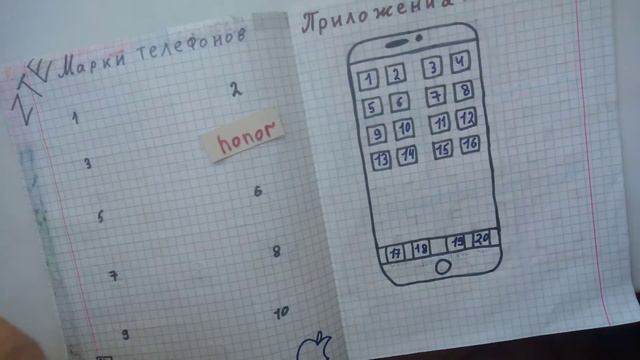 Марки телефонов
1 2
honor
3
5 6
7 8
9 10
Приложения
1 2 3 4
5 6 7 8
9 10 11 12
13 14 15 16
17 18 19 20